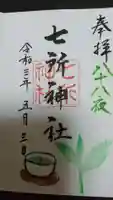 奉拝
八十八夜
七所神社
令和三年五月三日